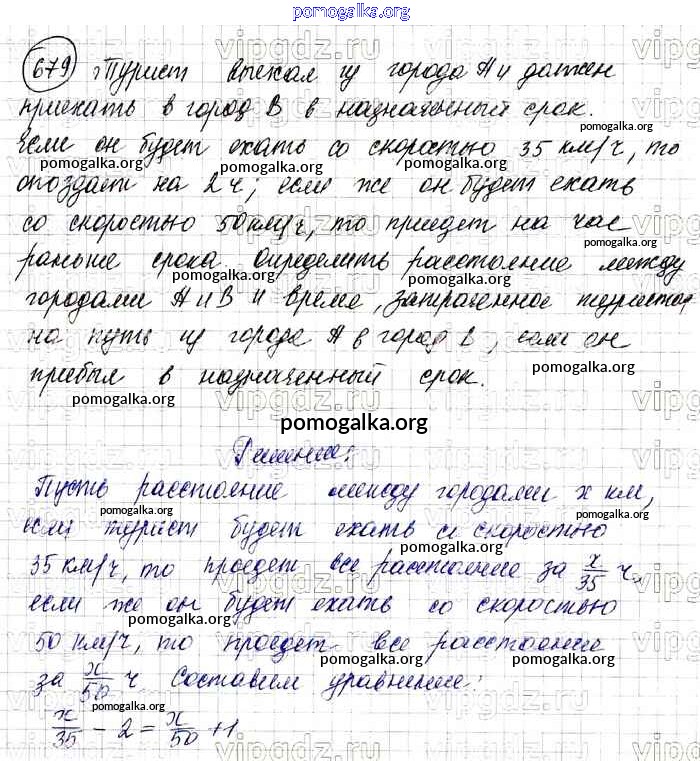 pomogalka.org
679 Турист выехал из города А и должен
приехать в город В в назначеный срок.
Если он будет ехать со скоростью 35 км/ч, то
опоздает на 2 ч; если же он будет ехать
со скоростью 50 км/ч, то приедет на час
раньше срока. Определить расстояние между
городами А и В и время, затраченное туристом,
на путь из города А в город В, если он
прибыл в назначенный срок.
pomogalka.org
Решение:
Пусть расстояние между городами x км,
если турист будет ехать со скоростью
35 км/ч, то проедет все расстояние за x/35 ч.,
если же он будет ехать со скоростью
50 км/ч, то проедет все расстояние
за x/50 ч Составим уравнение:
x/35 - 2 = x/50 + 1
vipgdz.ru